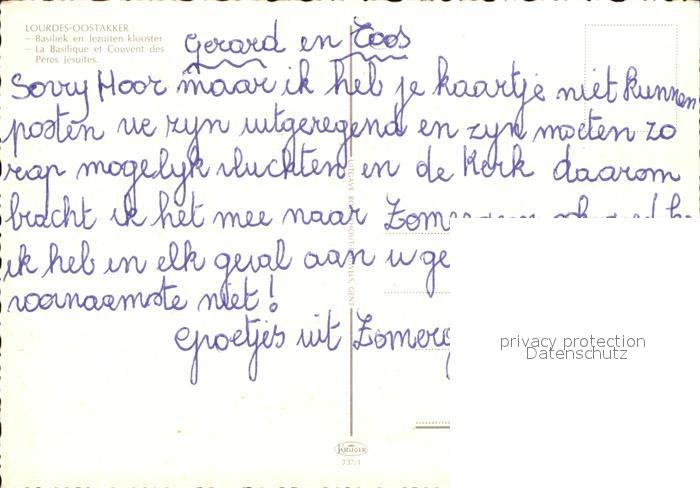 LOURDES-OOSTAKKER
– Basiliek en Jezuïten klooster
– La Basilique et Couvent des
Pères Jésuites.
Gerard en Toos
Sorry Hoor maar ik heb je kaartje niet kunnen
posten we zyn uitgeregend en zyn moeten zo
rap mogelyk vluchten in de Kerk daarom
bracht ik het mee naar
ik heb in elk geval aan u ge
voornaamste niet!
Groetjes uit Zomerg
KRÜGER
737/1
privacy protection
Datenschutz